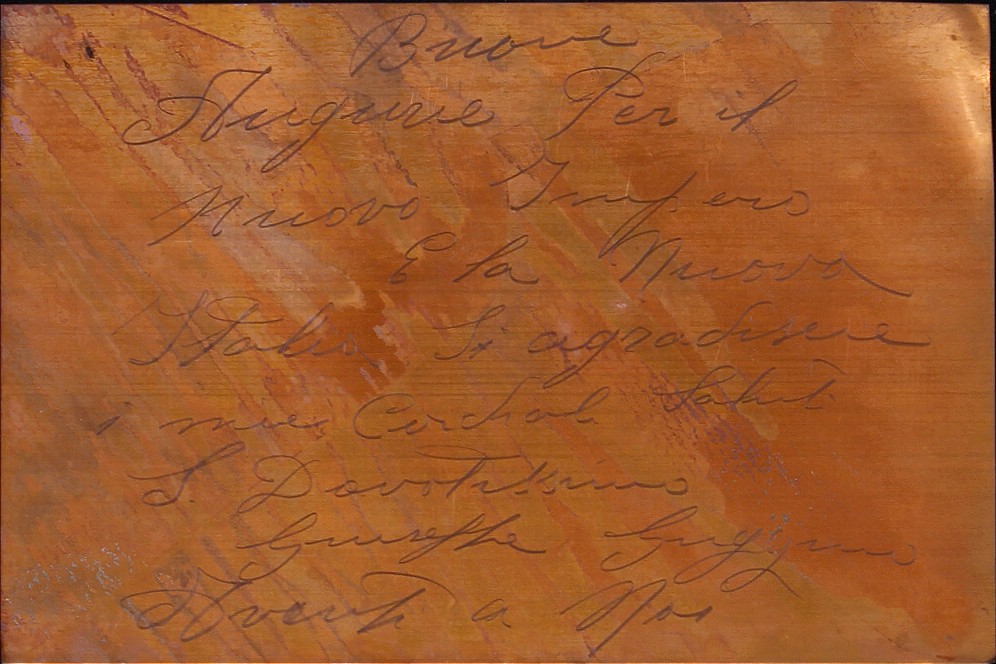 Buone
Augurie Per il
Nuovo Impero
E la Nuova
Italia Si agradiscie
i miei Cordiali Saluti
S. Devotissimo
Giuseppe
Aventi a Noi